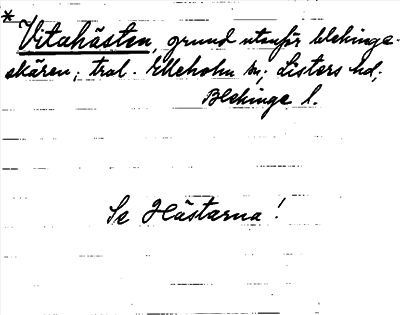 * Vitahästen, grund utanför Blekinge-
skären; tral. Elleholm sn, Listers hd,
Blekinge l.
Se Hästarna!